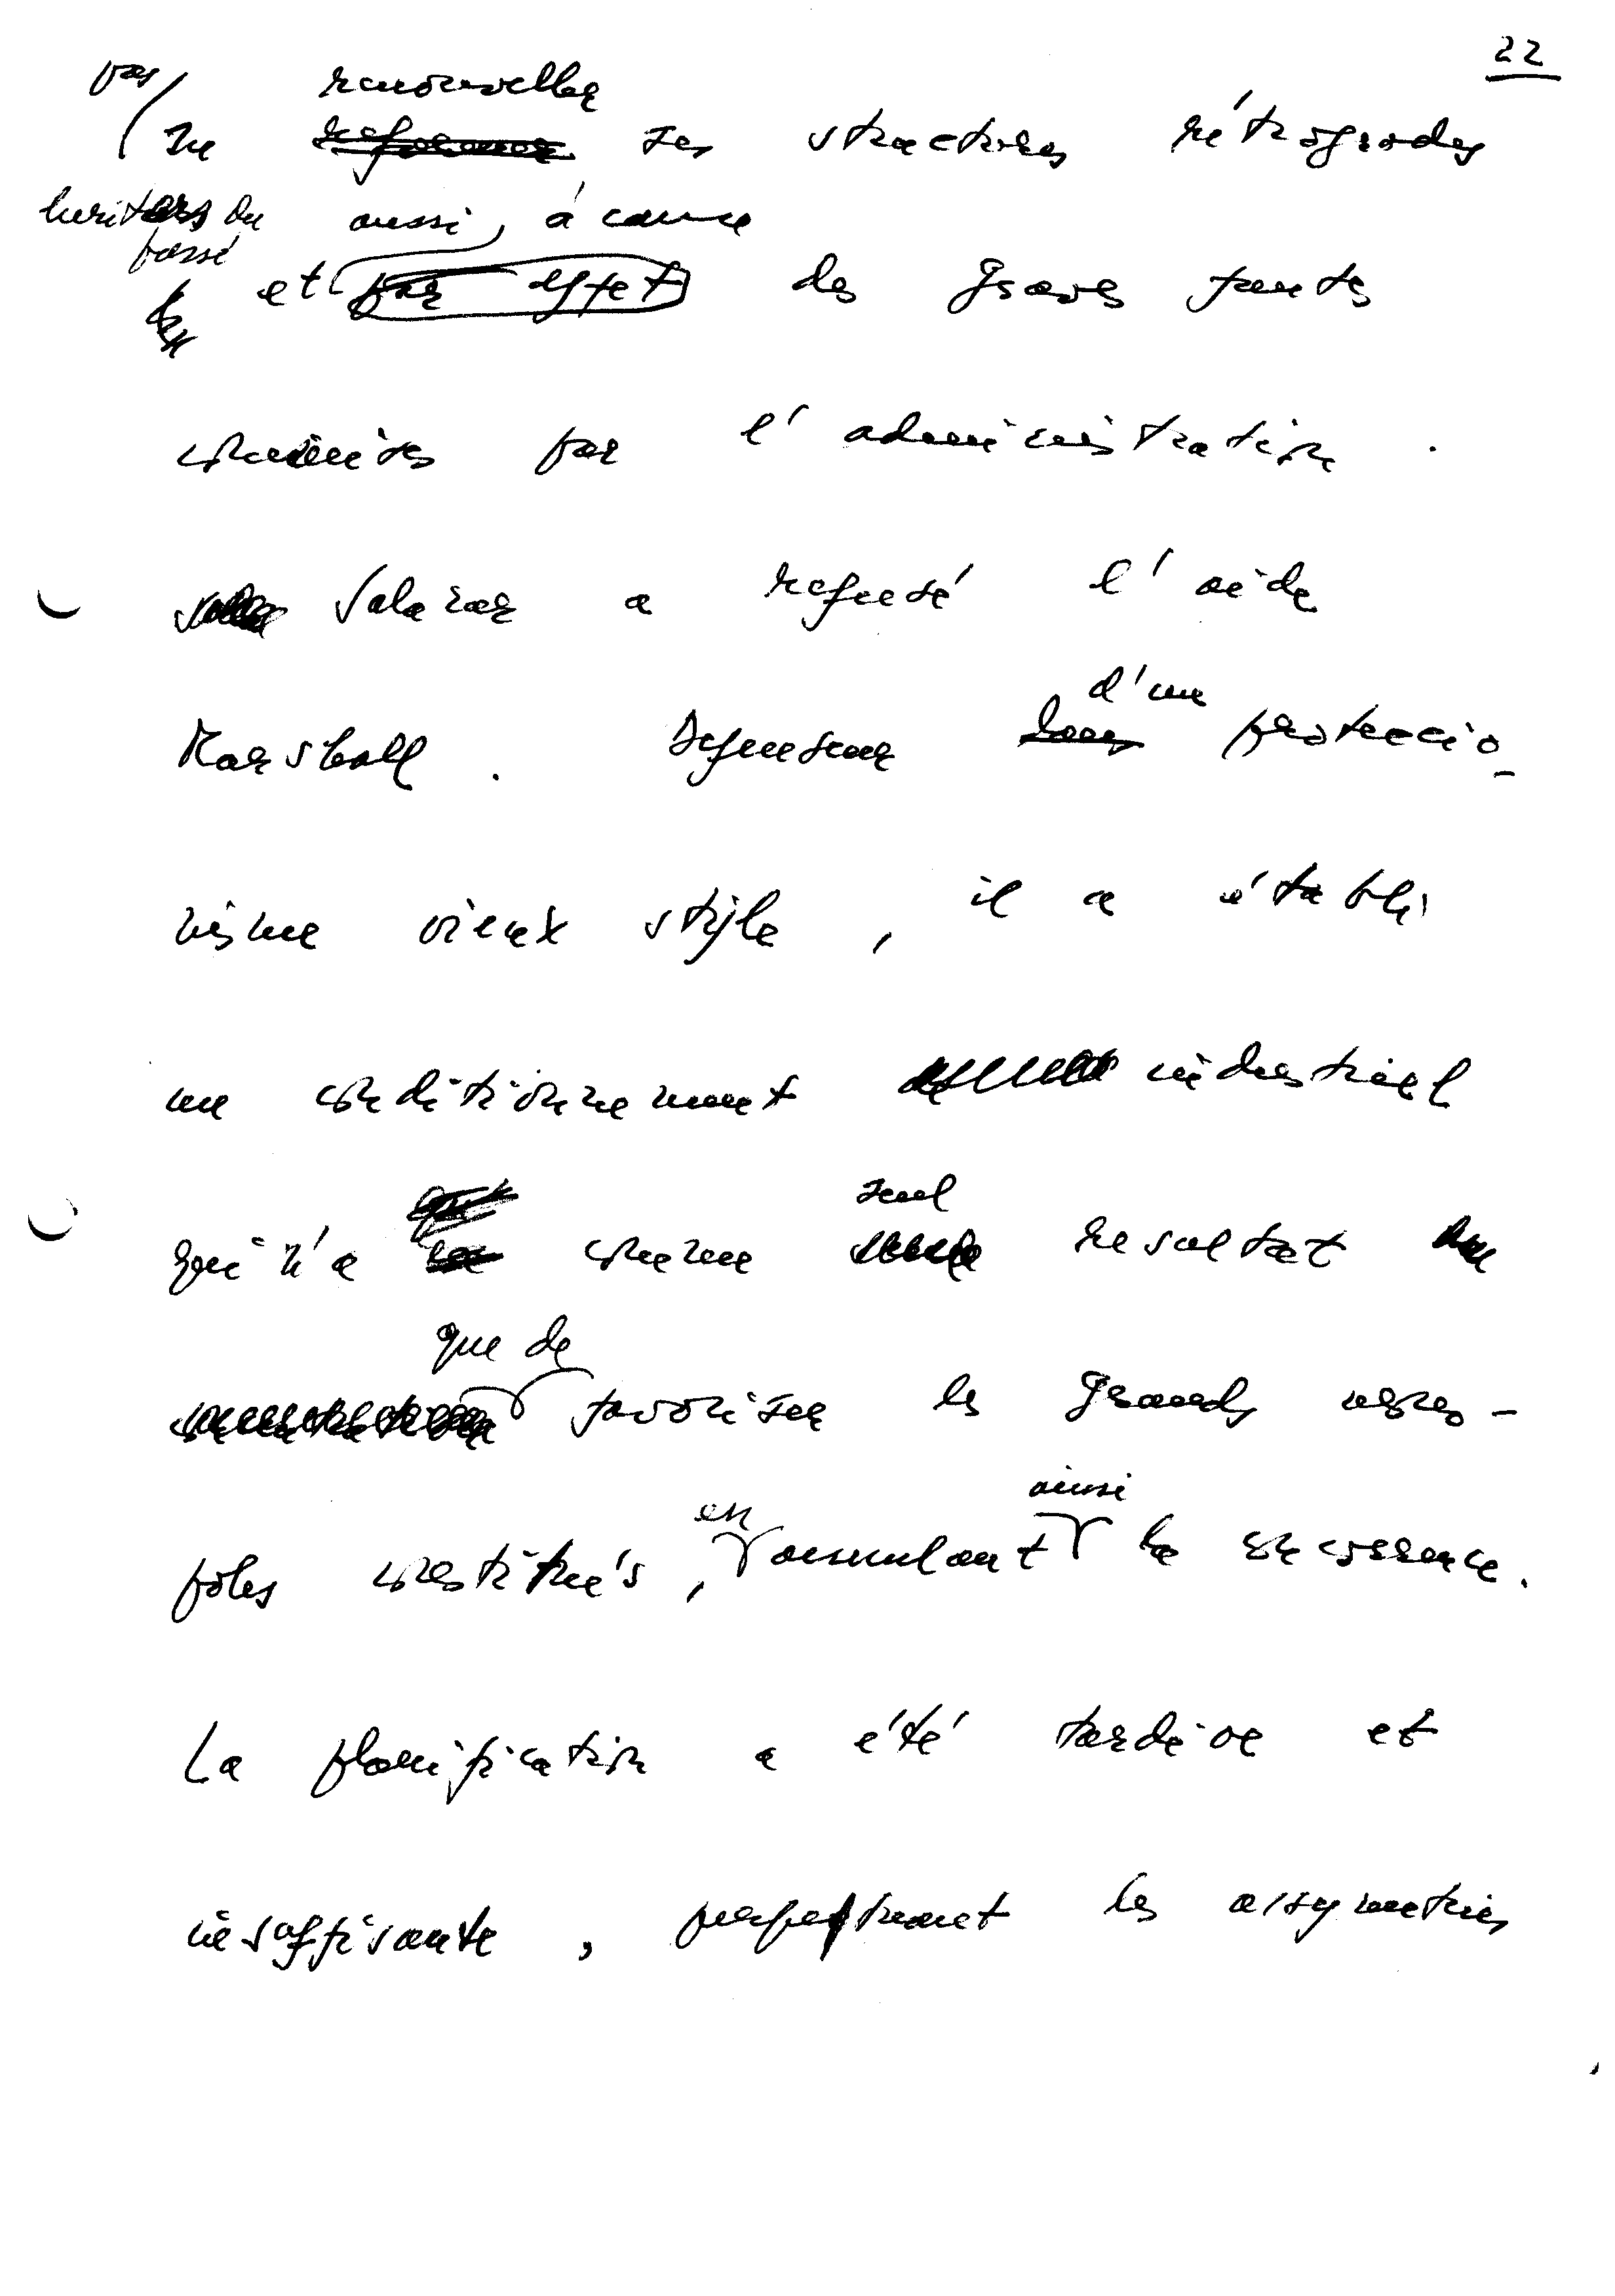 22
pas renouveller
ne reformer ses structures rétrogrades
heritées du aussi, à cause
passé
et par effet des graves fautes
commises par l'administration.
Salazar a refusé l'aide
d'un
Marshall. Defenseur proteccio-
nisme vieux style, il a établi
un conditionnement industriel
seul
qui n'a comme resultat
que de
favoriser les grands
en ainsi
poles constitués, annulant la concorrence.
La planification a été tardive et
insuffisante, perpetuant les assymetries